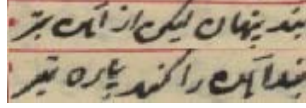 بند پنهان لیکن از آهن بتر
بند آهن را کند پاره تبر